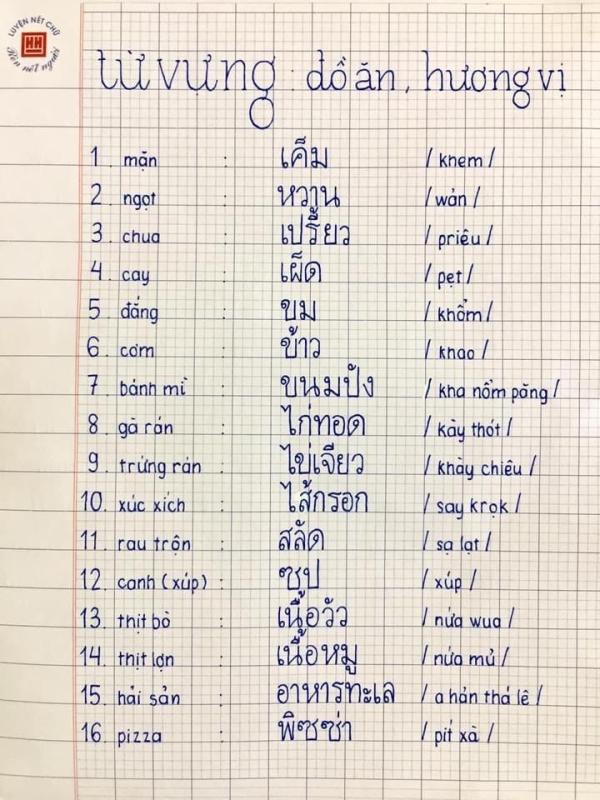 LUYỆN NÉT CHỮ
Rèn nết người
từ vựng : đồ ăn, hương vị
1. mặn : เค็ม / khem /
2. ngọt : หวาน / wán /
3. chua : เปรี้ยว / priêu /
4. cay : เผ็ด / pẹt /
5. đắng : ขม / khổm /
6. cơm : ข้าว / khao /
7. bánh mì : ขนมปัง / kha nổm păng /
8. gà rán : ไก่ทอด / kày thót /
9. trứng rán : ไข่เจียว / khày chiêu /
10. xúc xích : ไส้กรอก / say krọk /
11. rau trộn : สลัด / sạ lạt /
12. canh (xúp) : ซุป / xúp /
13. thịt bò : เนื้อวัว / nứa wua /
14. thịt lợn : เนื้อหมู / nứa mủ /
15. hải sản : อาหารทะเล / a hán thá lê /
16. pizza : พิซซ่า / pít xà /